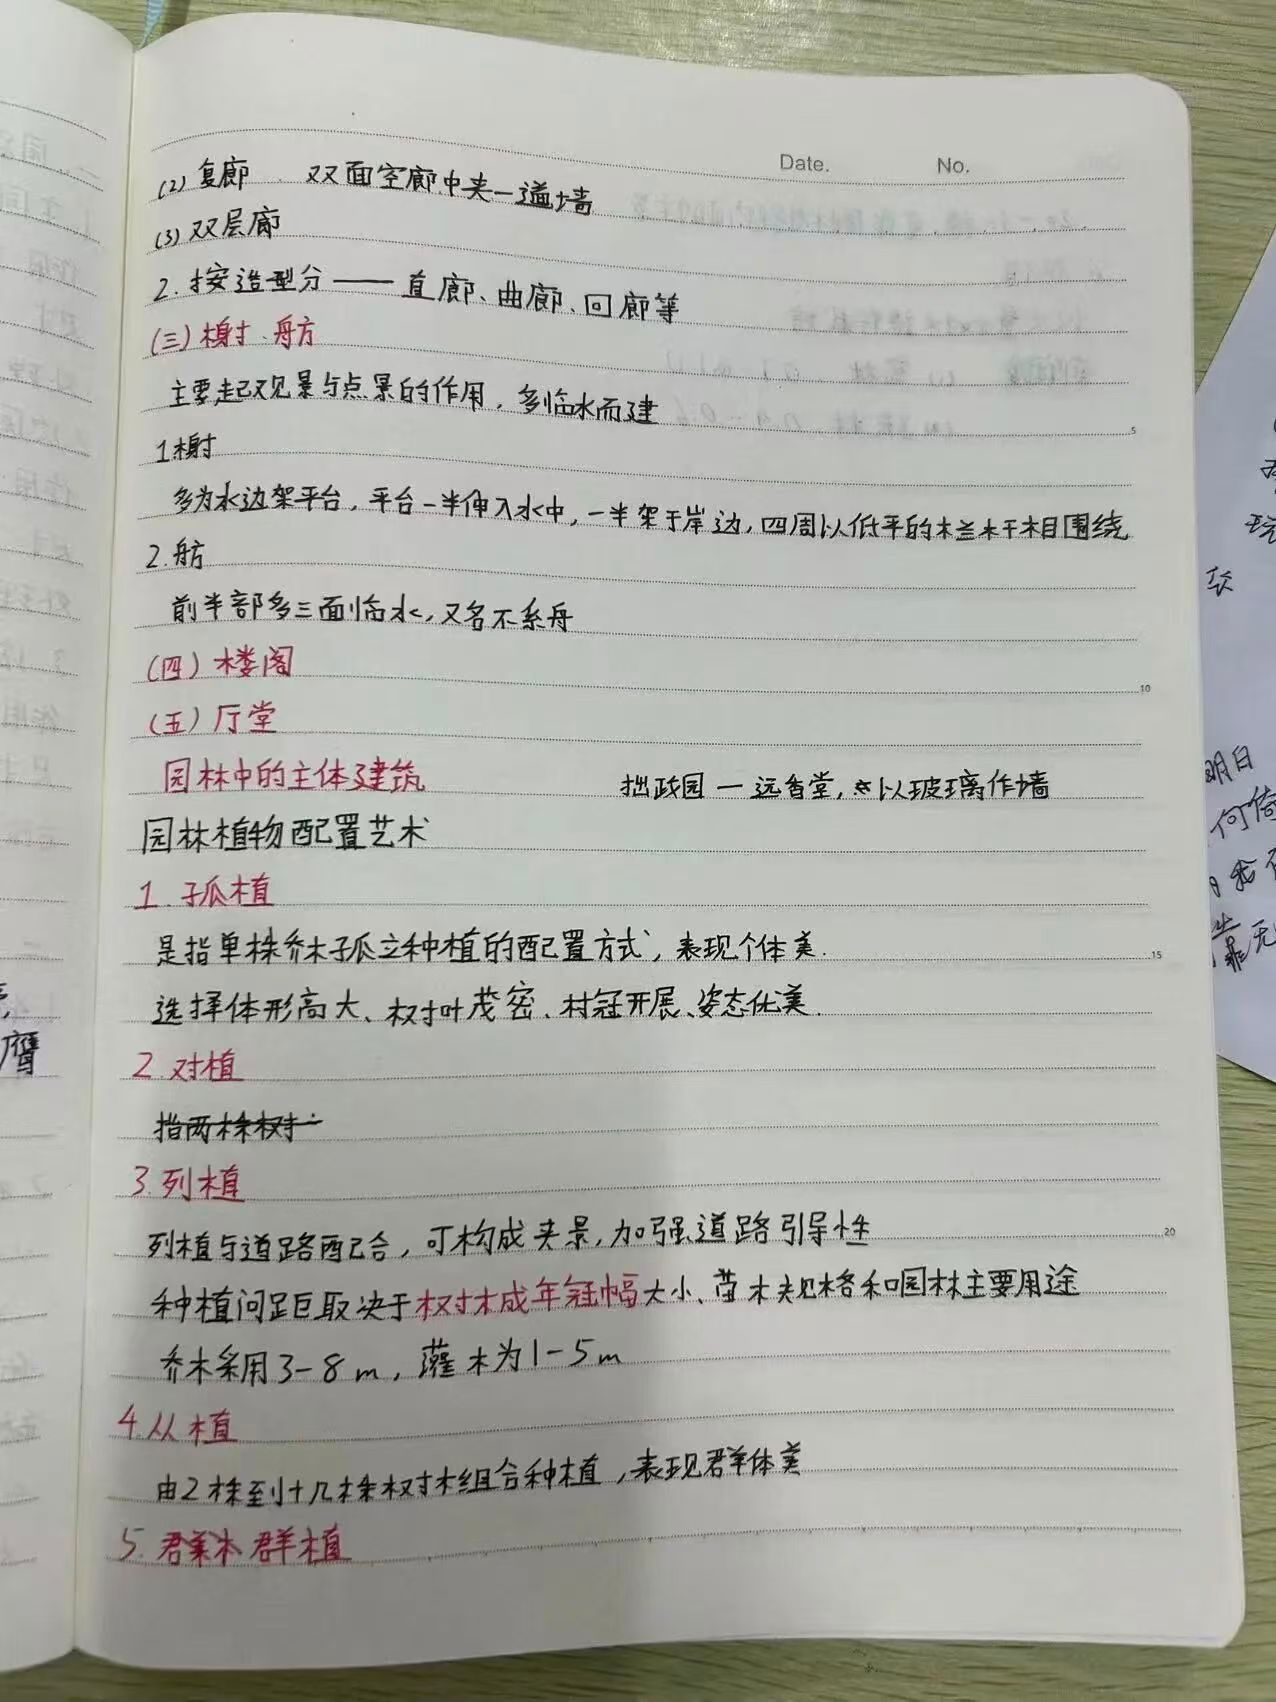 Date. No.
(2) 复廊 . 双面空廊中夹一道墙
(3) 双层廊
2. 按造型分 —— 直廊、曲廊、回廊等
(三) 榭、舫
主要起观景与点景的作用，多临水而建
5
1 榭
多为水边架平台，平台一半伸入水中，一半架于岸边，四周以低平的栏杆相围绕
2. 舫
前半部多三面临水，又名不系舟
(四) 楼阁
10
(五) 厅堂
园林中的主体建筑 拙政园 — 远香堂，以玻璃作墙
园林植物配置艺术
1. 孤植
是指单株乔木孤立种植的配置方式，表现个体美.
15
选择体形高大、树叶茂密、树冠开展、姿态优美.
2. 对植
指两株树
3. 列植
列植与道路配合，可构成夹景，加强道路引导性
20
种植间距取决于树木成年冠幅大小、苗木规格和园林主要用途
乔木采用3-8m，灌木为1-5m
4. 从植
由2株至十几株树木组合种植，表现群体美
5. 群植
明日
何倚
我
靠无